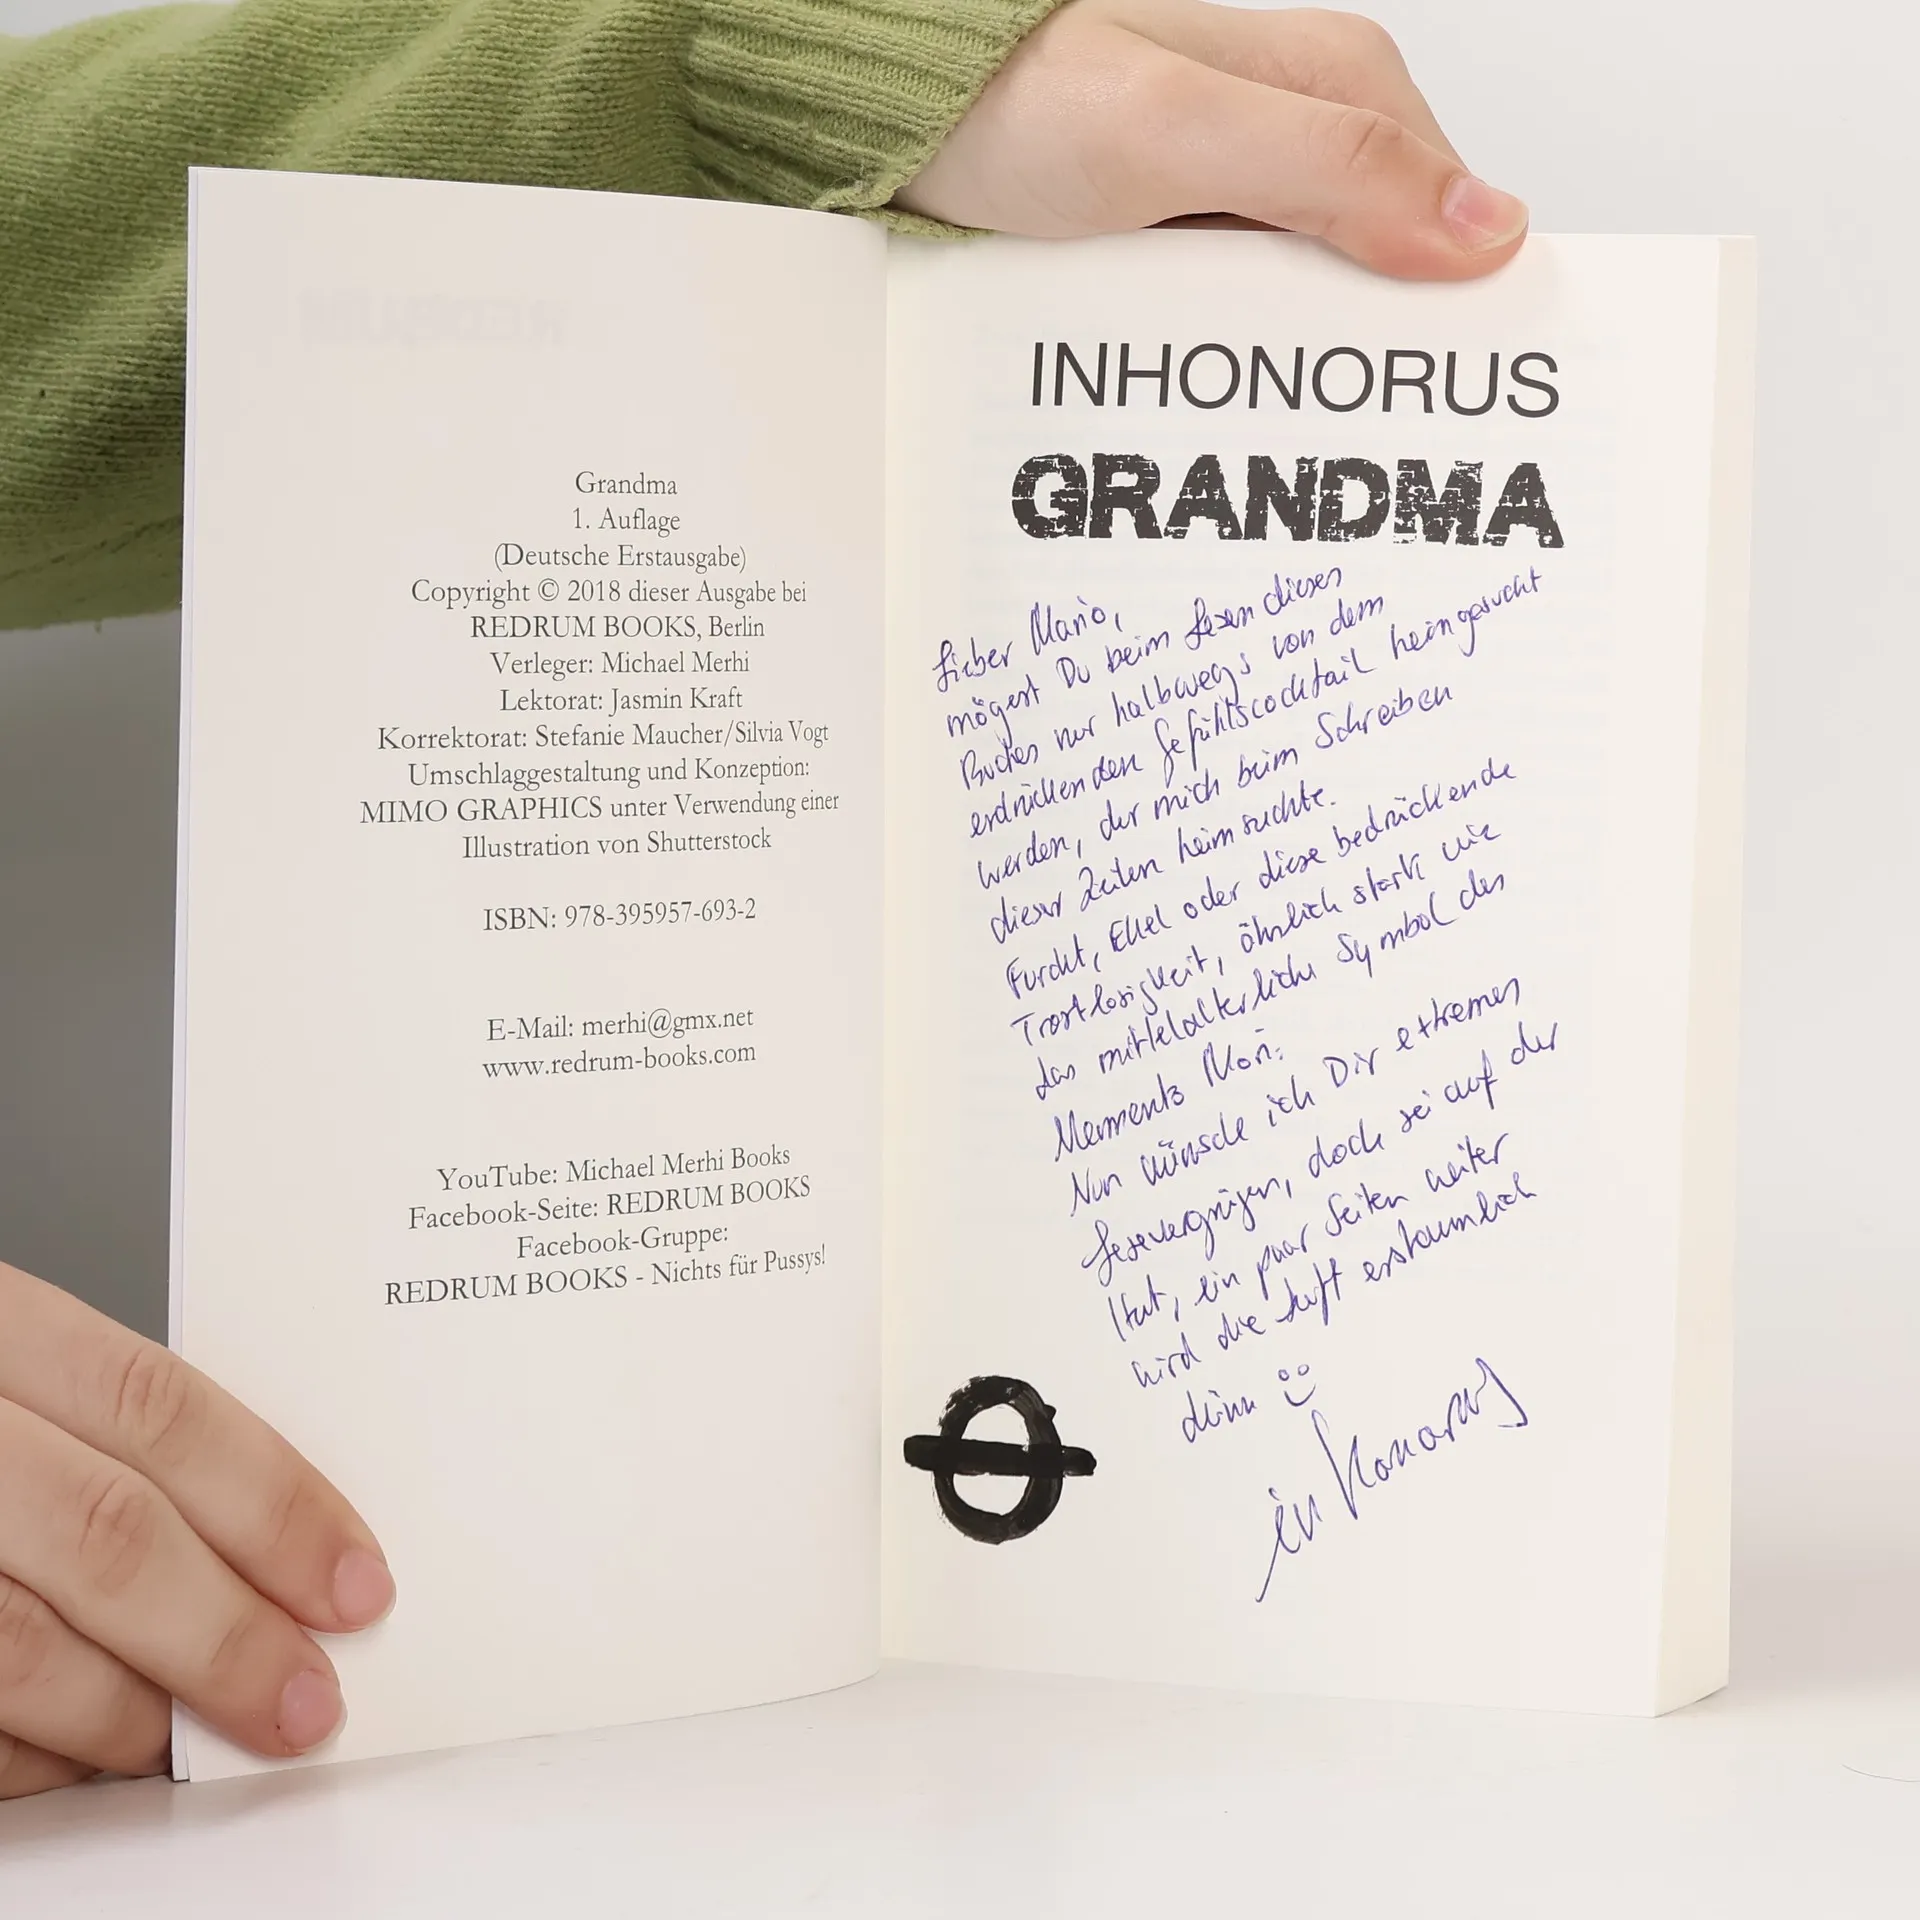 Grandma
1. Auflage
(Deutsche Erstausgabe)
Copyright © 2018 dieser Ausgabe bei
REDRUM BOOKS, Berlin
Verleger: Michael Merhi
Lektorat: Jasmin Kraft
Korrektorat: Stefanie Maucher/Silvia Vogt
Umschlaggestaltung und Konzeption:
MIMO GRAPHICS unter Verwendung einer
Illustration von Shutterstock
ISBN: 978-395957-693-2
E-Mail: merhi@gmx.net
www.redrum-books.com
YouTube: Michael Merhi Books
Facebook-Seite: REDRUM BOOKS
Facebook-Gruppe:
REDRUM BOOKS - Nichts für Pussys!
INHONORUS
GRANDMA
Lieber Mario,
mögest Du beim Lesen dieses
Buches nur halbwegs von dem
erdrückenden Gefühlscocktail heimgesucht
werden, der mich beim Schreiben
dieser Zeilen heimsuchte.
Furcht, Ekel oder diese bedrückende
Trostlosigkeit, ähnlich stark wie
das mittelalterliche Symbol des
Memento Mori.
Nun wünsche ich Dir extremes
Lesevergnügen, doch sei auf der
Hut, ein paar Seiten weiter
wird die Luft erstaunlich
dünn
Inhonorus